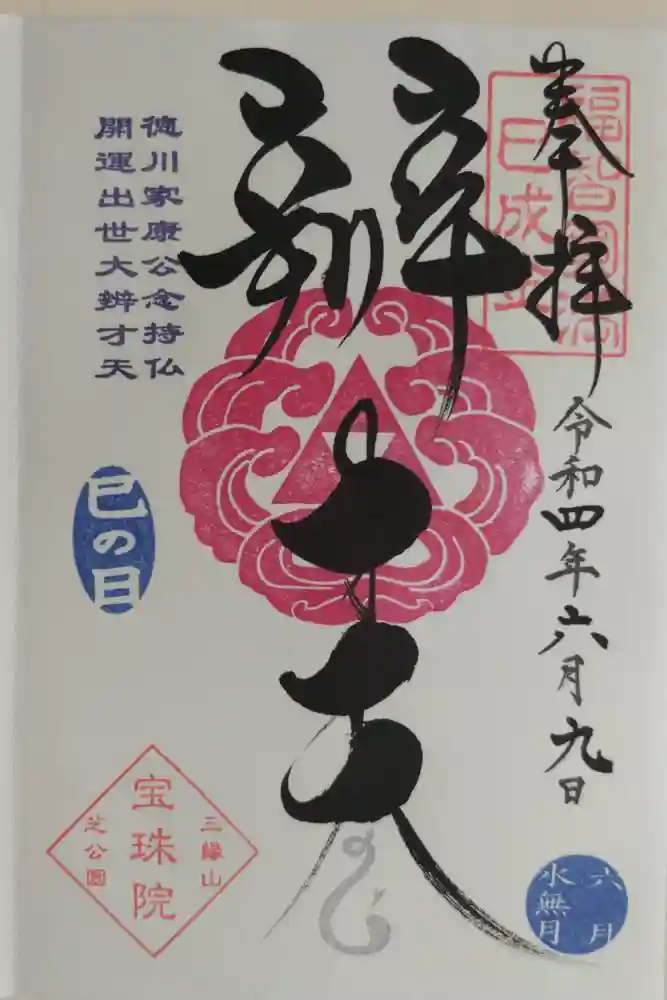 奉拝
令和四年六月九日
辨才天
徳川家康公念持仏
開運出世大辨才天
巳の日
六月
水無月
三縁山
宝珠院
芝公園